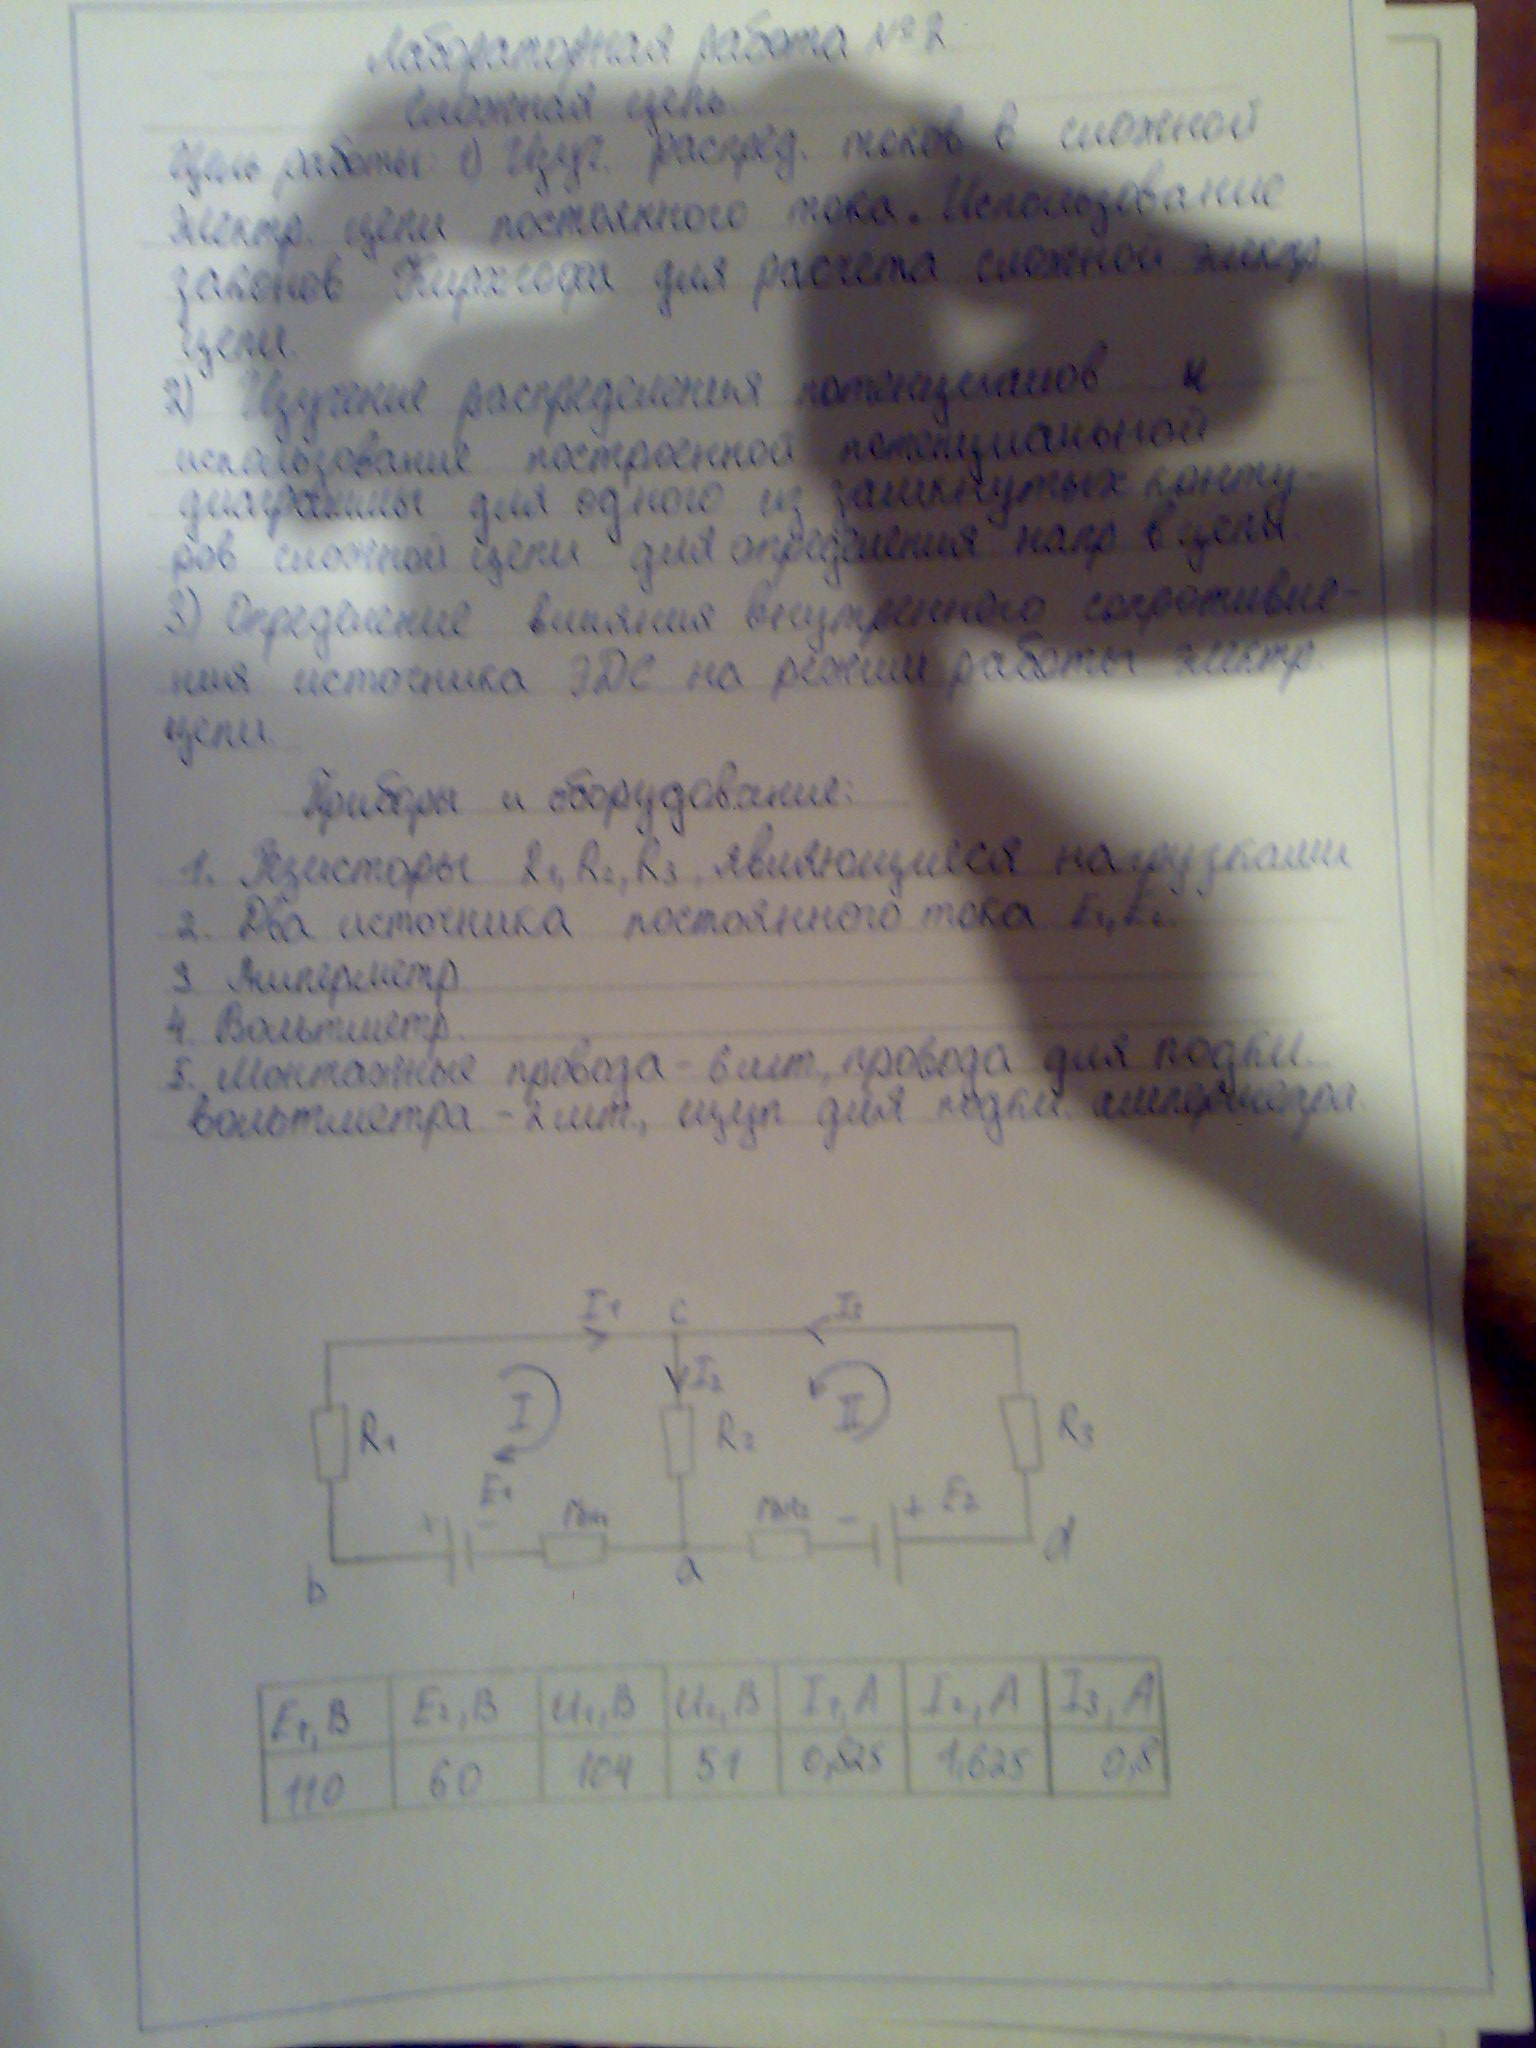 Лабораторная работа № 2
Сложная цепь.
Цель работы: 1) Изуч. распред. токов в сложной
электр. цепи постоянного тока. Использование
законов Кирхгофа для расчета сложной электр.
цепи.
2) Изучение распределения потенциалов и
использование построенной потенциальной
диаграммы для одного из замкнутых конту-
ров сложной цепи для определения напр. в цепи
3) Определение влияния внутреннего сопротивле-
ния источника ЭДС на режим работы электр.
цепи.
Приборы и оборудование:
1. Резисторы R1, R2, R3, являющиеся нагрузками
2. Два источника постоянного тока E1, E2.
3. Амперметр
4. Вольтметр.
5. Монтажные провода - 6 шт., провода для подкл.
вольтметра - 2 шт., щуп для подкл. амперметра.
I1 c I3
I I2 II
R1 R2 R3
E1 rвн1 rвн2 E2
+ - - +
b a d
E1, В E2, В U1, В U2, В I1, А I2, А I3, А
110 60 104 51 0,825 1,625 0,8